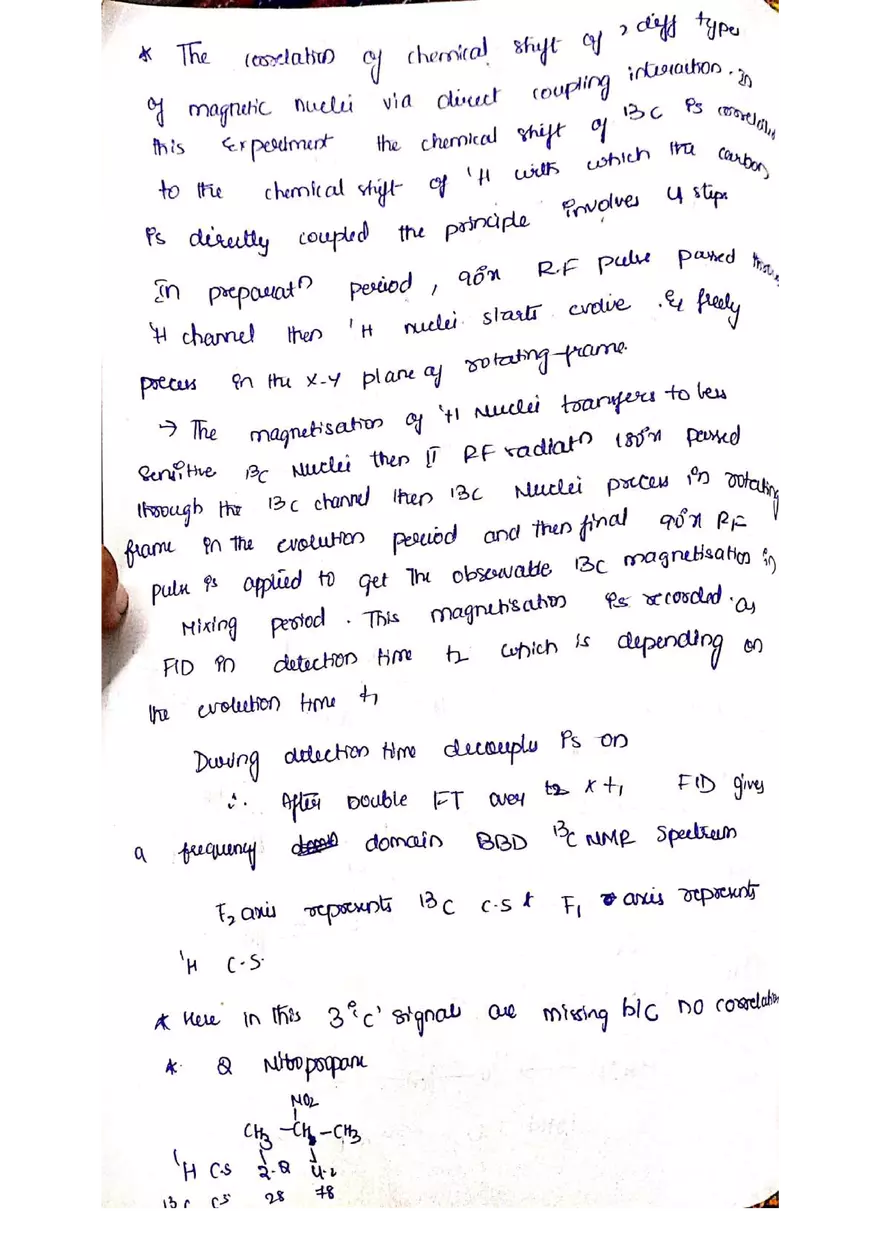 * The correlation of chemical shift of 2 diff types
of magnetic nuclei via direct coupling interaction. in
this Experiment the chemical shift of 13C is
to the chemical shift of 1H with which the carbon
is directly coupled the principle involves 4 steps
In preparatn period, 90°x R.F pulse passed
1H channel then 1H nuclei starts evolve & freely
precess in the X-Y plane of rotating frame.
→ The magnetisation of 1H Nuclei transfers to less
Sensitive 13C Nuclei then II RF radiatn 180°x passed
through the 13C channel then 13C Nuclei precess in rotating
frame in the evolution period and then final 90°x RF
pulse is applied to get The observable 13C magnetisation in
Mixing period. This magnetisation is recorded as
FID in detection time t2 which is depending on
the evolution time t1
During detection time decouple is on
∴ After Double FT over t2 x t1 FID gives
a frequency domain BBD 13C NMR Spectrum
F2 axis represents 13C C.S & F1 axis represents
1H C.S.
* Here in this 3°C' signal are missing b/c no
* 2 Nitropropane
NO2
CH3 - CH - CH3
1H C.S
13C CS 28 78